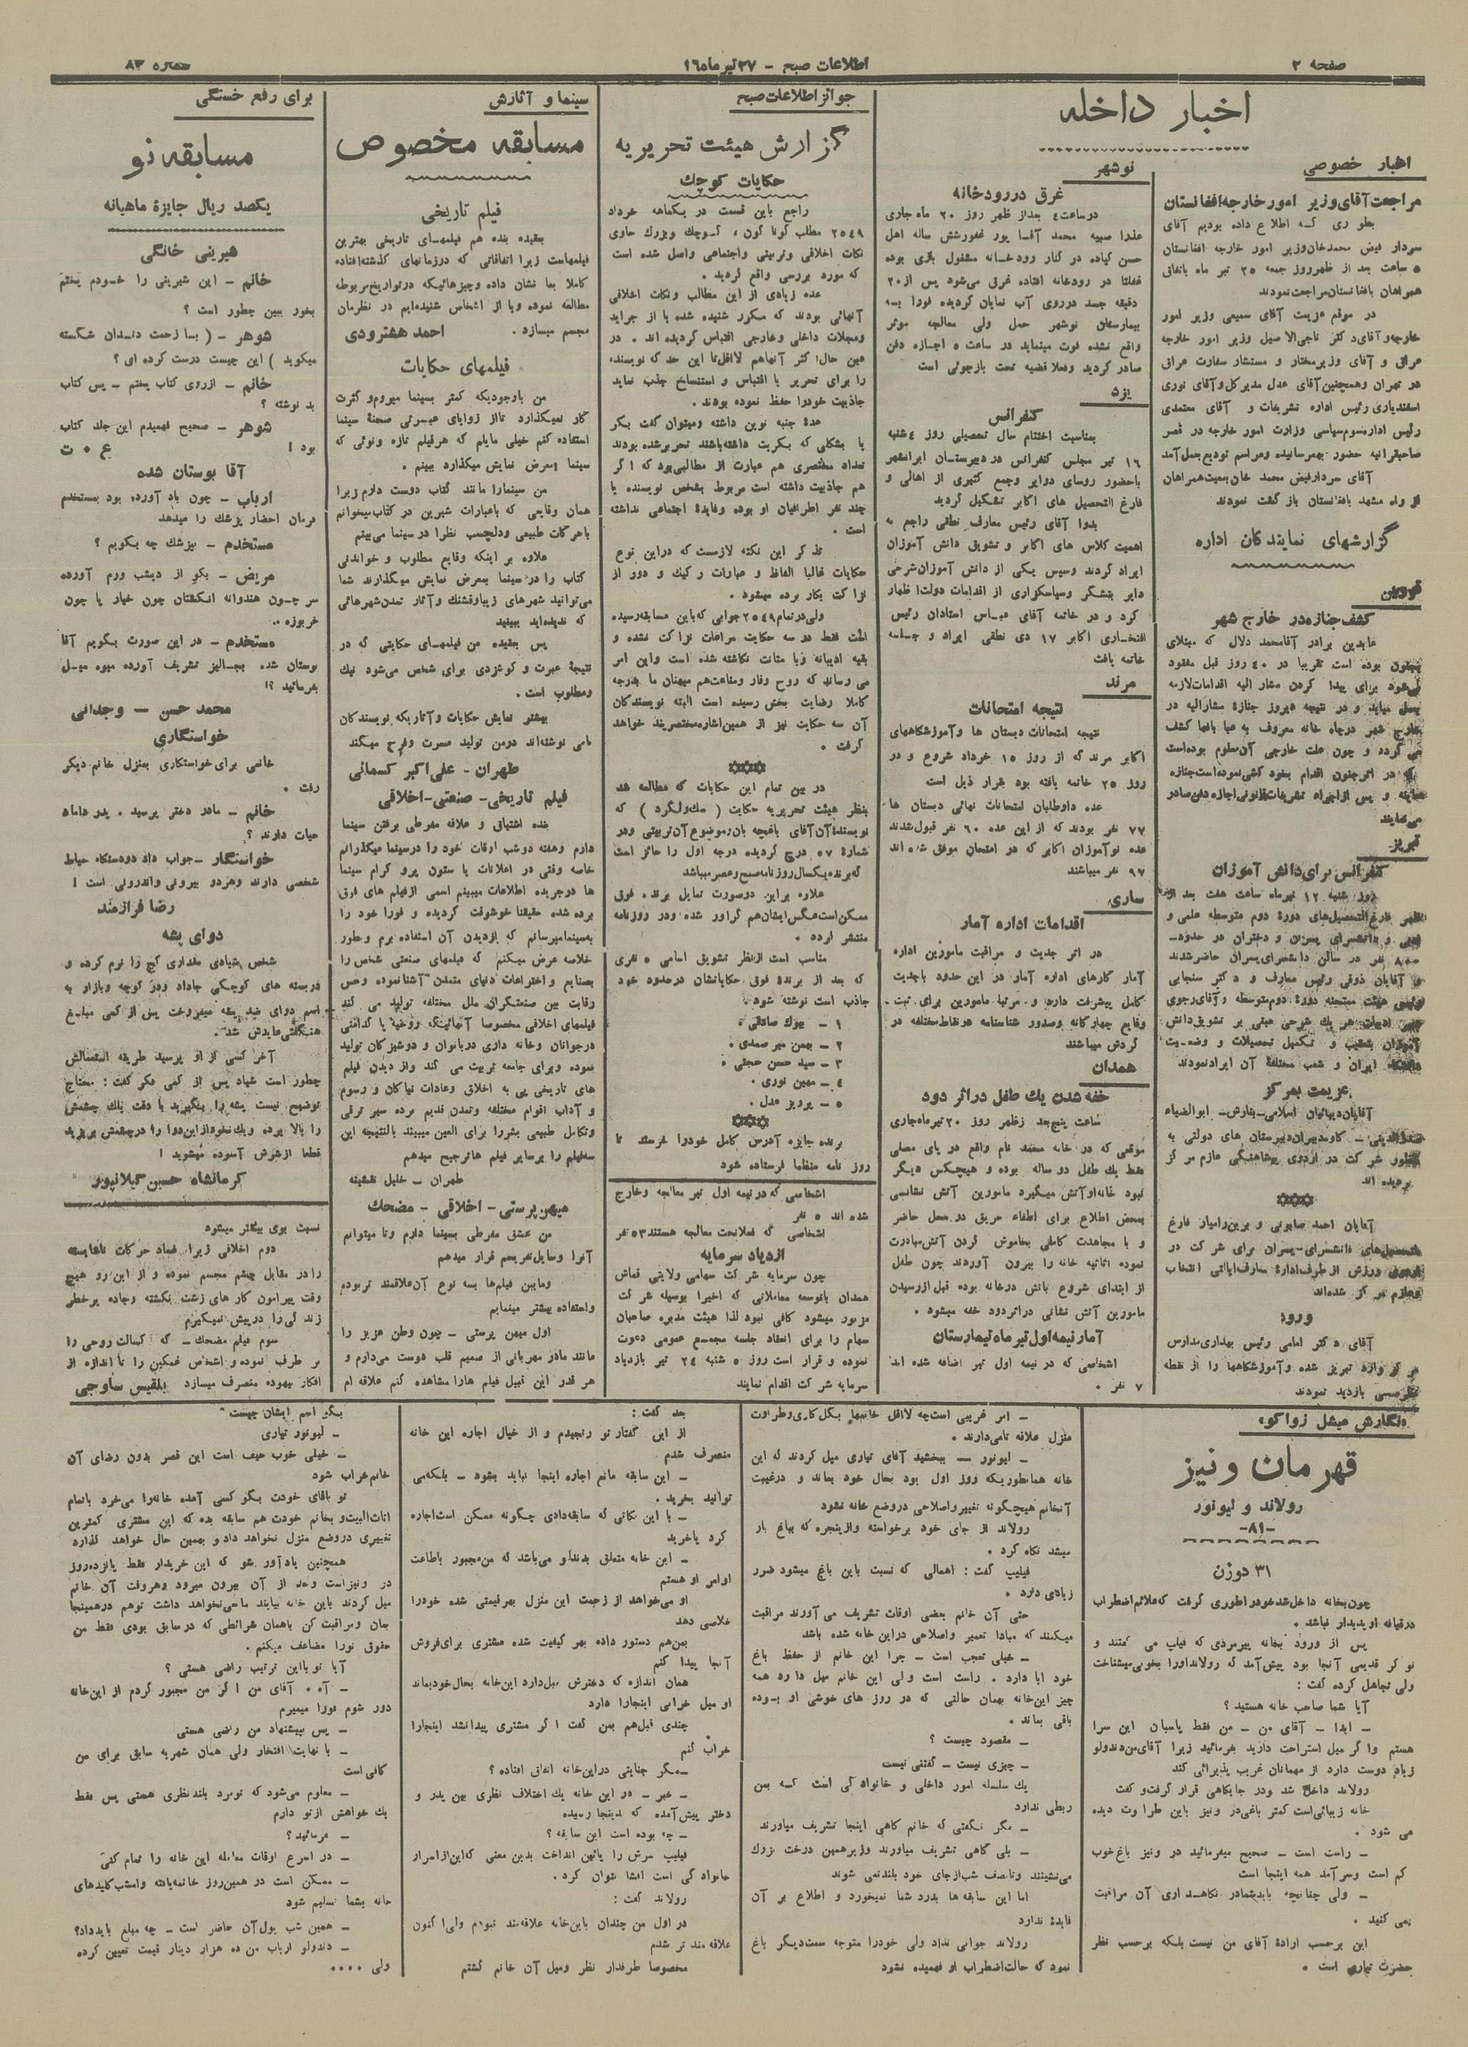 صفحه ۲
اطلاعات صبح - ۲۷ تیر ماه ۱۶
شماره ۸۳
اخبار داخله
اخبار خصوصی
مراجعت آقای وزیر امور خارجه افغانستان
بطوری که اطلاع داده بودیم آقای
سردار فیض محمد خان وزیر امور خارجه افغانستان
۵ ساعت بعد از ظهر روز جمعه ۲۵ تیر ماه باتفاق
همراهان بافغانستان مراجعت نمودند
در موقع عزیمت آقای سمیعی وزیر امور
خارجه و آقای دکتر ناجی الاصیل وزیر امور خارجه
عراق و آقای وزیر مختار و مستشار سفارت عراق
در تهران وهمچنین آقای عدل مدیر کل و آقای نوری
اسفندیاری رئیس اداره تشریفات و آقای معتمدی
رئیس اداره سوم سیاسی وزارت امور خارجه در قصر
صاحبقرانیه حضور بهمرسانیده ومراسم تودیع بعمل آمد
آقای سردار فیض محمد خان بمعیت همراهان
از راه مشهد بافغانستان باز گشت نمودند
گزارشهای نمایندگان اداره
قزوین
کشف جنازه در خارج شهر
عابدین برادر آقا محمد دلال که مبتلای
بجنون بوده است تقریبا در ۴۰ روز قبل مفقود
میشود برای پیدا کردن مشار الیه اقدامات لازمه
بعمل میاید و در نتیجه دیروز جنازه مشارالیه در
خارج شهر درچاه خانه معروف به میا باقا کشف
می گردد و چون علت خارجی آن معلوم بوده است
که در اثر جنون اقدام بخود کشی نموده است جنازه
معاینه و پس از اجراء تشریفات قانونی اجازه دفن صادر
می نمایند
تبریز
کنفرانس برای دانش آموزان
روز شنبه ۱۲ تیرماه ساعت هفت بعد از
ظهر فارغ التحصیل های دورهٔ دوم متوسطه علمی و
ادبی و دانشسرای پسران و دختران در حدود
۸۰۰ نفر در سالن دانشسرای پسران حاضر شدند
و آقایان ذوقی رئیس معارف و دکتر سنجابی
رئیس هیئت ممتحنه دورهٔ دوم متوسطه و آقای رجوی
دبیر ادبیات هر یك شرحی مبنی بر تشویق دانش
آموزان بتعقیب و تکمیل تحصیلات و وضعیت
دانشگاه ایران و شعب مختلفهٔ آن ایراد نمودند
عزیمت بمرکز
آقایان دیهانیان اسلامی - بنارش - ابوالضیاء
گاو دبیران دبیرستان های دولتی به
منظور شرکت در اردوی پیشاهنگی عازم مرکز
گردیده اند
آقایان احمد صابونی و برین رامیار فارغ
التحصیل های دانشسرای پسران برای شرکت در
ورزش از طرف ادارهٔ معارف ایالتی انتخاب
وعازم مرکز شده اند
ورود
آقای دکتر امامی رئیس بهداری مدارس
مرکز وارد تبریز شده و آموزشگاهها را از نقطه
بازدید نمودند
نوشهر
غرق در رودخانه
در ساعت ۴ بعد از ظهر روز ۲۰ ماه جاری
عذرا صبیه محمد آقا پور غفور شش ساله اهل
حسن کیاده در کنار رودخانه مشغول بازی بوده
غفلتا در رودخانه افتاده غرق می شود پس از ۲۰
دقیقه جسد درروی آب نمایان گردیده فورا به
بیمارستان نوشهر حمل ولی معالجه موثر
واقع نشده فوت مینماید در ساعت ۵ اجازه دفن
صادر گردید وفعلا قضیه تحت بازجوئی است
یزد
کنفرانس
بمناسبت اختتام سال تحصیلی روز ۴ شنبه
۱۶ تیر مجلس کنفرانس در دبیرستان ایرانشهر
باحضور روسای دوایر وجمع کثیری از اهالی و
فارغ التحصیل های اکابر تشکیل گردید
بدوا آقای رئیس معارف نطقی راجع به
اهمیت کلاس های اکابر و تشویق دانش آموزان
ایراد کردند وسپس یکی از دانش آموزان شرحی
دایر بتشکر وسپاسگزاری از اقدامات دولت اظهار
کرد و در خاتمه آقای عباس استادان رئیس
افتخاری اکابر ۱۷ دی نطقی ایراد و جلسه
خاتمه یافت
مرند
نتیجه امتحانات
نتیجه امتحانات دبستان ها وآموزشگاههای
اکابر مرند که از روز ۱۵ خرداد شروع و در
روز ۲۵ خاتمه یافته بود بقرار ذیل است
عده داوطلبان امتحانات نهائی دبستان ها
۷۷ نفر بودند که از این عده ۶۰ نفر قبول شدند
عده نوآموزان اکابر که در امتحان موفق شده اند
۹۷ نفر میباشند
ساری
اقدامات اداره آمار
در اثر جدیت و مراقبت مامورین اداره
آمار کارهای اداره آمار در این حدود باجدیت
کامل پیشرفت دارد و مرتبا مامورین برای ثبت
وقایع چهارگانه وصدور شناسنامه در نقاط مختلفه در
گردش میباشند
همدان
خفه شدن یك طفل در اثر دود
ساعت پنج بعد از ظهر روز ۲۰ تیر ماه جاری
موقعی که در خانه محمد نام واقع در پای مصلی
فقط یك طفل دو ساله بوده و هیچکس دیگر
نبود خانه او آتش میگیرد مامورین آتش نشانی
بمحض اطلاع برای اطفاء حریق در محل حاضر
و با مجاهدت کاملی بخاموش کردن آتش مبادرت
نموده اثاثیه خانه را بیرون آوردند چون طفل
از ابتدای شروع باتش درخانه بوده قبل از رسیدن
مامورین آتش نشانی در اثر دود خفه میشود .
آمار نیمه اول تیر ماه تیمارستان
اشخاصی که در نیمه اول تیر اضافه شده اند
۷ نفر .
جوائز اطلاعات صبح
گزارش هیئت تحریریه
حکایات کوچك
راجع باین قسمت در یکماهه خرداد
۲۵۴۹ مطلب گونا گون ، کوچك وبزرك حاوی
نکات اخلاقی وتربیتی واجتماعی واصل شده است
که مورد بررسی واقع گردید .
عده زیادی از این مطالب ونکات اخلاقی
آنهائی بودند که مکرر شنیده شده یا از جراید
ومجلات داخلی وخارجی اقتباس گردیده اند . در
عین حال اکثر آنهاهم لااقل تا این حد که نویسنده
را برای تحریر یا اقتباس و استنساخ جذب نماید
جاذبیت خودرا حفظ نموده بودند .
عدهٔ جنبه نوین داشته ومیتوان گفت بکر
یا بشکلی که بکریت داشته باشند تحریر شده بودند
تعداد مختصری هم عبارت از مطالبی بود که اگر
هم جاذبیت داشته است مربوط بشخص نویسنده یا
چند نفر اطرافیان او بوده وفایدهٔ اجتماعی نداشته
است .
تذکر این نکته لازمست که دراین نوع
حکایات غالبا الفاظ و عبارات رکیك و دور از
نزاکت بکار برده میشود .
ولی در تمام ۲۵۴۹ جوابی که باین مسابقه رسیده
است فقط در سه حکایت مراعات نزاکت نشده و
بقیه ادیبانه وبا متانت نگاشته شده است واین امر
می رساند که روح وقار ومتاعت هم میهنان ما بدرجه
کاملا رضایت بخش رسیده است البته نویسندگان
آن سه حکایت نیز از همین اشاره مختصر پند خواهد
گرفت .
در بین تمام این حکایات که مطالعه شد
بنظر هیئت تحریریه حکایت ( سك ولگرد ) که
نویسندهٔ آن آقای باغچه بان وموضوع آن تربیتی ودر
شمارهٔ ۵۷ درج گردیده درجه اول را حائز است
که برنده یکسال روزنامه صبح وعصر میباشد
علاوه براین درصورت تمایل برنده فوق
ممکن است عکس ایشان هم گراور شده ودر روزنامه
منتشر گردد .
مناسب است از نظر تشویق اسامی ۵ نفری
که بعد از برندهٔ فوق حکایاتشان درحدود خود
جاذب است نوشته شود .
۱ - بیوك صادقی .
۲ - بهمن میر صمدی .
۳ - سید حسن حجتی .
۴ - مهین نوری .
۵ - پرویز عدل .
برنده جایزه آدرس کامل خودرا فرستد تا
روز نامه منظما فرستاده شود
اشخاصی که در نیمه اول تیر معالجه وخارج
شده اند ۵ نفر
اشخاصی که فعلا تحت معالجه هستند ۵۳ نفر
ازدیاد سرمایه
چون سرمایه شرکت سهامی ولایتی قماش
همدان باتوسعه معاملاتی که اخیرا بوسیله شرکت
مزبور میشود کافی نبود لذا هیئت مدیره صاحبان
سهام را برای انعقاد جلسه مجمع عمومی دعوت
نموده و قرار است روز ۵ شنبه ۲۴ تیر بازدیاد
سرمایه شرکت اقدام نمایند
سینما و آثارش
مسابقه مخصوص
فیلم تاریخی
بعقیده بنده هم فیلمهای تاریخی بهترین
فیلمهاست زیرا اتفاقاتی که در زمانهای گذشته افتاده
کاملا بما نشان داده وچیزهائیکه در تواریخ مربوطه
مطالعه نموده ویا از اشخاص شنیده ایم در نظرمان
مجسم میسازد . احمد هشترودی
فیلمهای حکایات
من باوجودیکه کمتر بسینما میروم و کثرت
کار نمیگذارد تا از زوایای عبرتی صحنهٔ سینما
استفاده کنم خیلی مایلم که هر فیلم تازه ونوئی که
سینما بمعرض نمایش میگذارد ببینم .
من سینمارا مانند کتاب دوست دارم زیرا
همان وقایعی که باعبارات شیرین در کتاب میخوانم
باحرکات طبیعی ودلچسب نظرا در سینما می بینم
علاوه بر اینکه وقایع مطلوب و خواندنی
کتاب را در سینما بمعرض نمایش میگذارند شما
می توانید شهرهای زیبا وقشنك و آثار تمدن شهرهائی
که ندیده اید ببینید
پس بعقیده من فیلمهای حکایتی که در
نتیجهٔ عبرت و گوشزدی برای شخص می شود نیك
ومطلوب است .
بیشتر نمایش حکایات وآثاریکه نویسندگان
نامی نوشته اند درمن تولید مسرت وفرح میکند
طهران - علی اکبر کسمائی
فیلم تاریخی - صنعتی - اخلاقی
بنده اشتیاق و علاقه مفرطی برفتن سینما
دارم وهفته دوشب اوقات خود را درسینما میگذرانم
خاصه وقتی در اعلانات یا ستون پرو گرام سینما
ها درجریده اطلاعات میبینم اسمی ازفیلم های فوق
برده شده حقیقتا خوشوقت گردیده و فورا خود را
بسینما میرسانم که ازدیدن آن استفاده برم وطور
خلاصه عرض میکنم که فیلمهای صنعتی شخص را
بصنایع و اختراعات دنیای متمدن آشنا نموده وحس
رقابت بین صنعتگران ملل مختلفه تولید می کند
فیلمهای اخلاقی مخصوصا آنهائیکه روحیهٔ پاکدامنی
درجوانان وخانه داری دربانوان و دوشیزگان تولید
نموده وبرای جامعه تربیت می کند واز دیدن فیلم
های تاریخی پی به اخلاق وعادات نیاکان و رسوم
و آداب اقوام مختلفه وتمدن قدیم مرده سیر ترقی
وتکامل طبیعی بشررا برای العین میبیند بالنتیجه این
سه فیلم را برسایر فیلم ها ترجیح میدهم
طهران - خلیل نفثیته
میهن پرستی - اخلاقی - مضحك
من عشق مفرطی بسینما دارم وتا میتوانم
آنرا وسایل تفریحم قرار میدهم
ومابین فیلم ها بسه نوع آن علاقمند تر بوده
واستفاده بیشتر مینمایم
اول میهن پرستی - چون وطن عزیز را
مانند مادر مهربانی از صمیم قلب دوست می دارم و
هر قدر این قبیل فیلم هارا مشاهده کنم علاقه ام
برای رفع خستگی
مسابقه نو
یکصد ریال جایزهٔ ماهیانه
شیرینی خانگی
خانم - این شیرینی را خودم پختم
بخور ببین چطور است ؟
شوهر - ( بسا زحمت دندان شکسته
میگوید ) این چیست درست کرده ای ؟
خانم - از روی کتاب پختم - پس کتاب
بد نوشته ؟
شوهر - صحیح فهمیدم این جلد کتاب
بود ! ع . ت
آقا بوستان شده
ارباب - چون باد آورده بود بمستخدم
فرمان احضار پزشك را میدهد
مستخدم - بپزشك چه بگویم ؟
مریض - بگو از دیشب ورم آورده
سر چون هندوانه انگشتان چون خیار یا چون
خربوزه ..
مستخدم - در این صورت بگویم آقا
بوستان شده بجالیز تشریف آورده میوه میل
بفرمائید ؟!
محمد حسن - وجدانی
خواستگاری
خانمی برای خواستکاری بمنزل خانم دیگر
رفت .
خانم - مادر دختر پرسید . پدر داماد
حیات دارند ؟
خواستگار - جواب داد دودستگاه حیاط
شخصی دارند وهردو بیرونی واندرونی است !
رضا فرازمند
دوای پشه
شخص شیادی مقداری گچ را نرم کرده و
دربسته های کوچکی جاداد ودر کوچه وبازار به
اسم دوای ضد پشه میفروخت پس از کمی مبلغ
هنگفتی عایدش شد
آخر کسی از او پرسید طریقه استعمالش
چطور است شیاد پس از کمی فکر گفت : محتاج
توضیح نیست پشه را بگیرید با دقت پلك چشمش
را بالا برده ویك نخود از این دوا را درچشمش بریزید
قطعا از شرش آسوده میشوید !
کرمانشاه حسین گیلانپور
نسبت بوی بیشتر میشود
دوم اخلاقی زیرا فساد حرکات ناشایسته
را در مقابل چشم مجسم نموده و از این رو هیچ
وقت پیرامون کار های زشت نگشته وجاده پر خطر
زندگی را درپیش نمیگیرم
سوم فیلم مضحك - که کسالت روحی را
بر طرف نموده و اشخاص غمگین را تا اندازه از
افکار بیهوده منصرف میسازد بلقیس ساوجی
«نگارش میشل زواکو»
قهرمان ونیز
رولاند و لیونور
-۸۱-
۳۱ دوژن
چون بخانه داخل شد خود را طوری گرفت که علائم اضطراب
در قیافه او پدیدار نباشد .
پس از ورود بخانه پیرمردی که فیلیپ می گفتند و
نوکر قدیمی آنجا بود پیش آمد که رولاند اورا بخوبی میشناخت
ولی تجاهل کرده گفت :
آیا شما صاحب خانه هستید ؟
- ابدا - آقای من - من فقط پاسبان این سرا
هستم واگر میل استراحت دارید بفرمائید زیرا آقای من دندولو
زیاد دوست دارد از مهمانان غریب پذیرائی کند
رولاند داخل شد ودر جایگاهی قرار گرفت و گفت
خانه زیبائی است کمتر باغی در ونیز باین طراوت دیده
می شود .
- راست است - صحیح میفرمائید در ونیز باغ خوب
کم است وسر آمد همه اینجا است
- ولی چنانچه بایدشمادر نگاهداری آن مراقبت
نمی کنید .
این برحسب ارادهٔ آقای من نیست بلکه برحسب نظر
حضرت تیاری است .
- امر غریبی است چه لااقل خانمها بگل کاری وطراوت
منزل علاقه تامی دارند .
- لیونور - ببخشید آقای تیاری میل کردند که این
خانه همانطوریکه روز اول بود بحال خود بماند و درغیبت
آنخانم هیچگونه تغییر واصلاحی دروضع خانه نشود
رولاند از جای خود برخواسته وازپنجره که بباغ باز
میشد نگاه کرد .
فیلیپ گفت : اهمالی که نسبت باین باغ میشود ضرر
زیادی دارد .
حتی آن خانم بعضی اوقات تشریف می آورند مراقبت
میکنند که مبادا تعمیر واصلاحی دراین خانه شده باشد
- خیلی تعجب است - چرا این خانم از حفظ باغ
خود ابا دارد . راست است ولی این خانم میل دارد همه
چیز این خانه بهمان حالتی که در روز های خوشی او بوده
باقی بماند .
- مقصود چیست ؟
- چیزی نیست - گفتنی نیست
یك سلسله امور داخلی و خانوادگی است که بمن
ربطی ندارد
- مگر نگفتی که خانم گاهی اینجا تشریف میاورند
- بلی گاهی تشریف میاورند وزیر همین درخت بزرك
می نشینند ونا نصف شب از جای خود بلند نمی شوند
اما این سابقه ها بدرد شما نمیخورد و اطلاع بر آن
فایدهٔ ندارد
رولاند جوابی نداد ولی خودرا متوجه سمت دیگر باغ
نمود که حالت اضطراب او فهمیده نشود
بعد گفت :
از این گفتار تو رنجیدم و از خیال اجاره این خانه
منصرف شدم
- این سابقه مانع اجاره اینجا نباید بشود - بلکه می
توانید بخرید .
- با این نکاتی که سابقه دادی چگونه ممکن است اجاره
کرد یا خرید
- این خانه متعلق بدندلو می باشد که من مجبور باطاعت
اوامر او هستم
او می خواهد از زحمت این منزل بهر قیمتی شده خودرا
خلاصی دهد
بمن هم دستور داده بهر کیفیت شده مشتری برای فروش
آنجا پیدا کنم
همان اندازه که دخترش میل دارد این خانه بحال خود بماند
او میل خرابی اینجارا دارد
چندی قبل هم بمن گفت اگر مشتری پیدا نشد اینجارا
خراب کنم
- مگر جنایتی دراین خانه اتفاق افتاده ؟
- خیر - در این خانه یك اختلاف نظری بین پدر و
دختر پیش آمده که بدینجا رسیده
- چه بوده است این سابقه ؟
فیلیپ سرش را پائین انداخت بدین معنی که این از اسرار
خانوادگی است افشا نتوان کرد .
رولاند گفت :
در اول من چندان باین خانه علاقه مند نبودم ولی اکنون
علاقه مند تر شدم
مخصوصا طرفدار نظر ومیل آن خانم گشتم
بگو اسم ایشان چیست
- لیونور تیاری
- خیلی خوب حیف است این قصر بدون رضای آن
خانم خراب شود
تو باقای خودت بگو کسی آمده خانه را می خرد باتمام
اثاث البیت و بخانم خودت هم سابقه بده که این مشتری کمترین
تغییری دروضع منزل نخواهد داد و بهمین حال خواهد گذارد
همچنین یاد آور شو که این خریدار فقط پانزده روز
در ونیز است وبعد از آن بیرون میرود وهروقت آن خانم
میل کردند باین خانه بیایند مانعی نخواهد داشت توهم درهمینجا
بمان ومراقبت کن باهمان شرائطی که درسابق بودی فقط من
حقوق تورا مضاعف میکنم .
آیا تو بااین ترتیب راضی هستی ؟
- آه . آقای من اگر من مجبور گردم از این خانه
دور شوم فورا میمیرم
- پس بپیشنهاد من راضی هستی
- با نهایت افتخار ولی همان شهریه سابق برای من
کافی است
- معلوم می شود که تومرد بلند نظری هستی پس فقط
یك خواهش از تو دارم
- فرمائید ؟
- در اسرع اوقات معامله این خانه را تمام کنی
- ممکن است در همین روز خاتمه یافته وامشب کلیدهای
خانه بشما تسلیم شود
- همین شب پول آن حاضر است - چه مبلغ باید داد؟
- دندولو ارباب من ده هزار دینار قیمت تعیین کرده
ولی ....